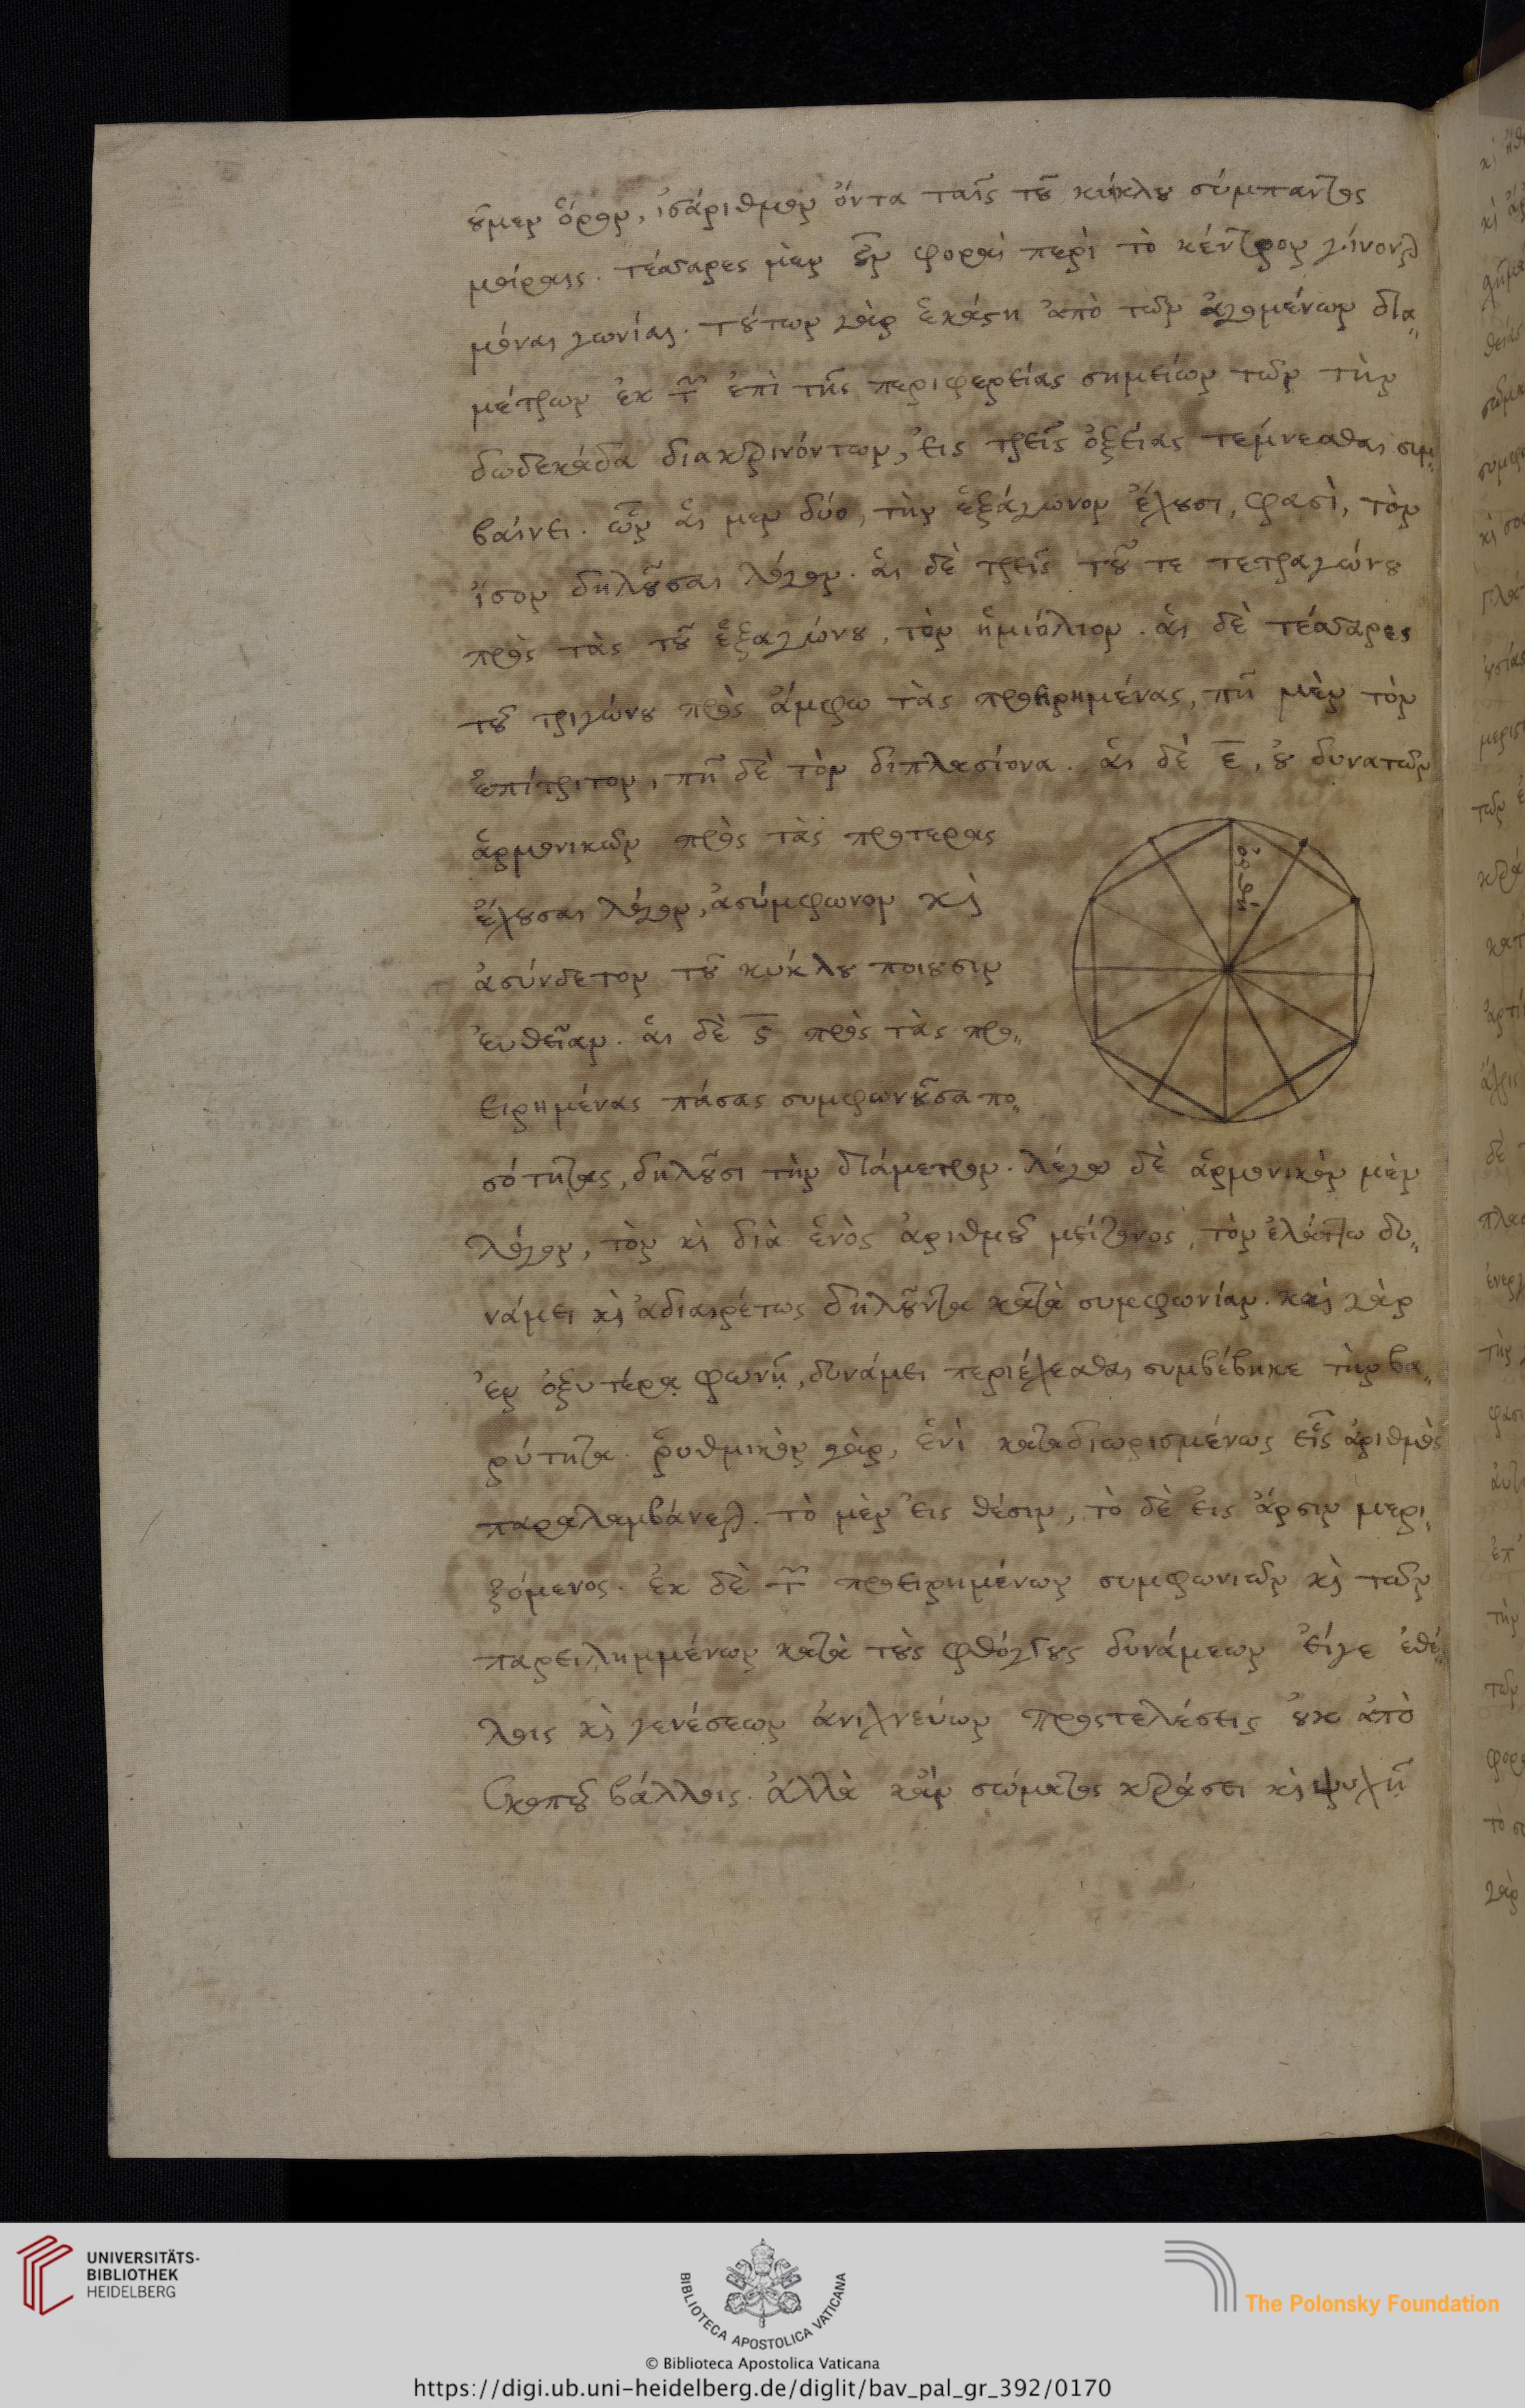 οὖμεν ὅρον, ἰσάριθμον ὄντα ταῖς τοῦ κύκλου σύμπαντος
μοίραις. τέσσαρες μὲν οὖν φοραὶ περὶ τὸ κέντρον γίνονται
μόναι γωνίαι. τούτων γὰρ ἑκάστη ἀπὸ τῶν ἀγομένων δια„
μέτρων ἐκ τῶν ἐπὶ τῆς περιφερείας σημείων τῶν τὴν
δωδεκάδα διακρινόντων, εἰς τρεῖς ὀξείας τέμνεσθαι συμ„
βαίνει. ὧν αἱ μεν δύο, τὴν ἑξάγωνον ἔχουσι, φασὶ, τὸν
ἴσον δηλοῦσαι λόγον. αἱ δὲ τρεῖς τοῦ τε τετραγώνου
πρὸς τὰς τοῦ ἑξαγώνου, τὸν ἡμιόλιον. αἱ δὲ τέσσαρες
τοῦ τριγώνου πρὸς ἄμφω τὰς προηρημένας, πῆ μὲν τὸν
ἐπίτριτον, πῆ δὲ τὸν διπλασίονα. αἱ δὲ ε, οὐ δυνατῶν
ἁρμονικῶν πρὸς τὰς προτερας
ἔχουσαι λόγον, ἀσύμφωνον καὶ
ἀσύνδετον τοῦ κύκλου ποιουσιν
ἐυθεῖαν. αἱ δὲ ϛ πρὸς τὰς προ„
ειρημένας πάσας συμφωνοῦσα πο„
σότητας, δηλοῦσι τὴν διάμετρον. λέγω δὲ ἁρμονικὸν μὲν
λόγον, τὸν καὶ διὰ ἑνὸς ἀριθμοῦ μείζονος, τὸν ἐλάττω δυ„
νάμει καὶ ἀδιαιρέτως δηλοῦντα κατὰ συμφωνίαν. καὶ γὰρ
ἐν ὀξυτέρᾳ φωνῇ, δυνάμει περιέχεσθαι συμβέβηκε τὴν βα„
ρύτητα. ῥυθμικὸν γὰρ, ἑνὶ καταδιωρισμένως εἷς ἀριθμὸς
παραλαμβάνεται. τὸ μὲν εἰς θέσιν, τὸ δὲ εἰς ἄρσιν μερι„
ζόμενος. ἐκ δὲ τῶν προειρημένων συμφωνιῶν καὶ τῶν
παρειλημμένων κατὰ τοὺς φθόγγους δυνάμεων εἴγε ἐθέ„
λοις καὶ γενέσεων ἀνιχνεύων προςτελέσεις οὐκ ἀπὸ
σκοποῦ βάλλοις. ἀλλὰ κἂν σώματος κράσει καὶ ψυχῇ
UNIVERSITÄTS-
BIBLIOTHEK
HEIDELBERG
BIBLIOTECA APOSTOLICA VATICANA
The Polonsky Foundation
© Biblioteca Apostolica Vaticana
https://digi.ub.uni-heidelberg.de/diglit/bav_pal_gr_392/0170